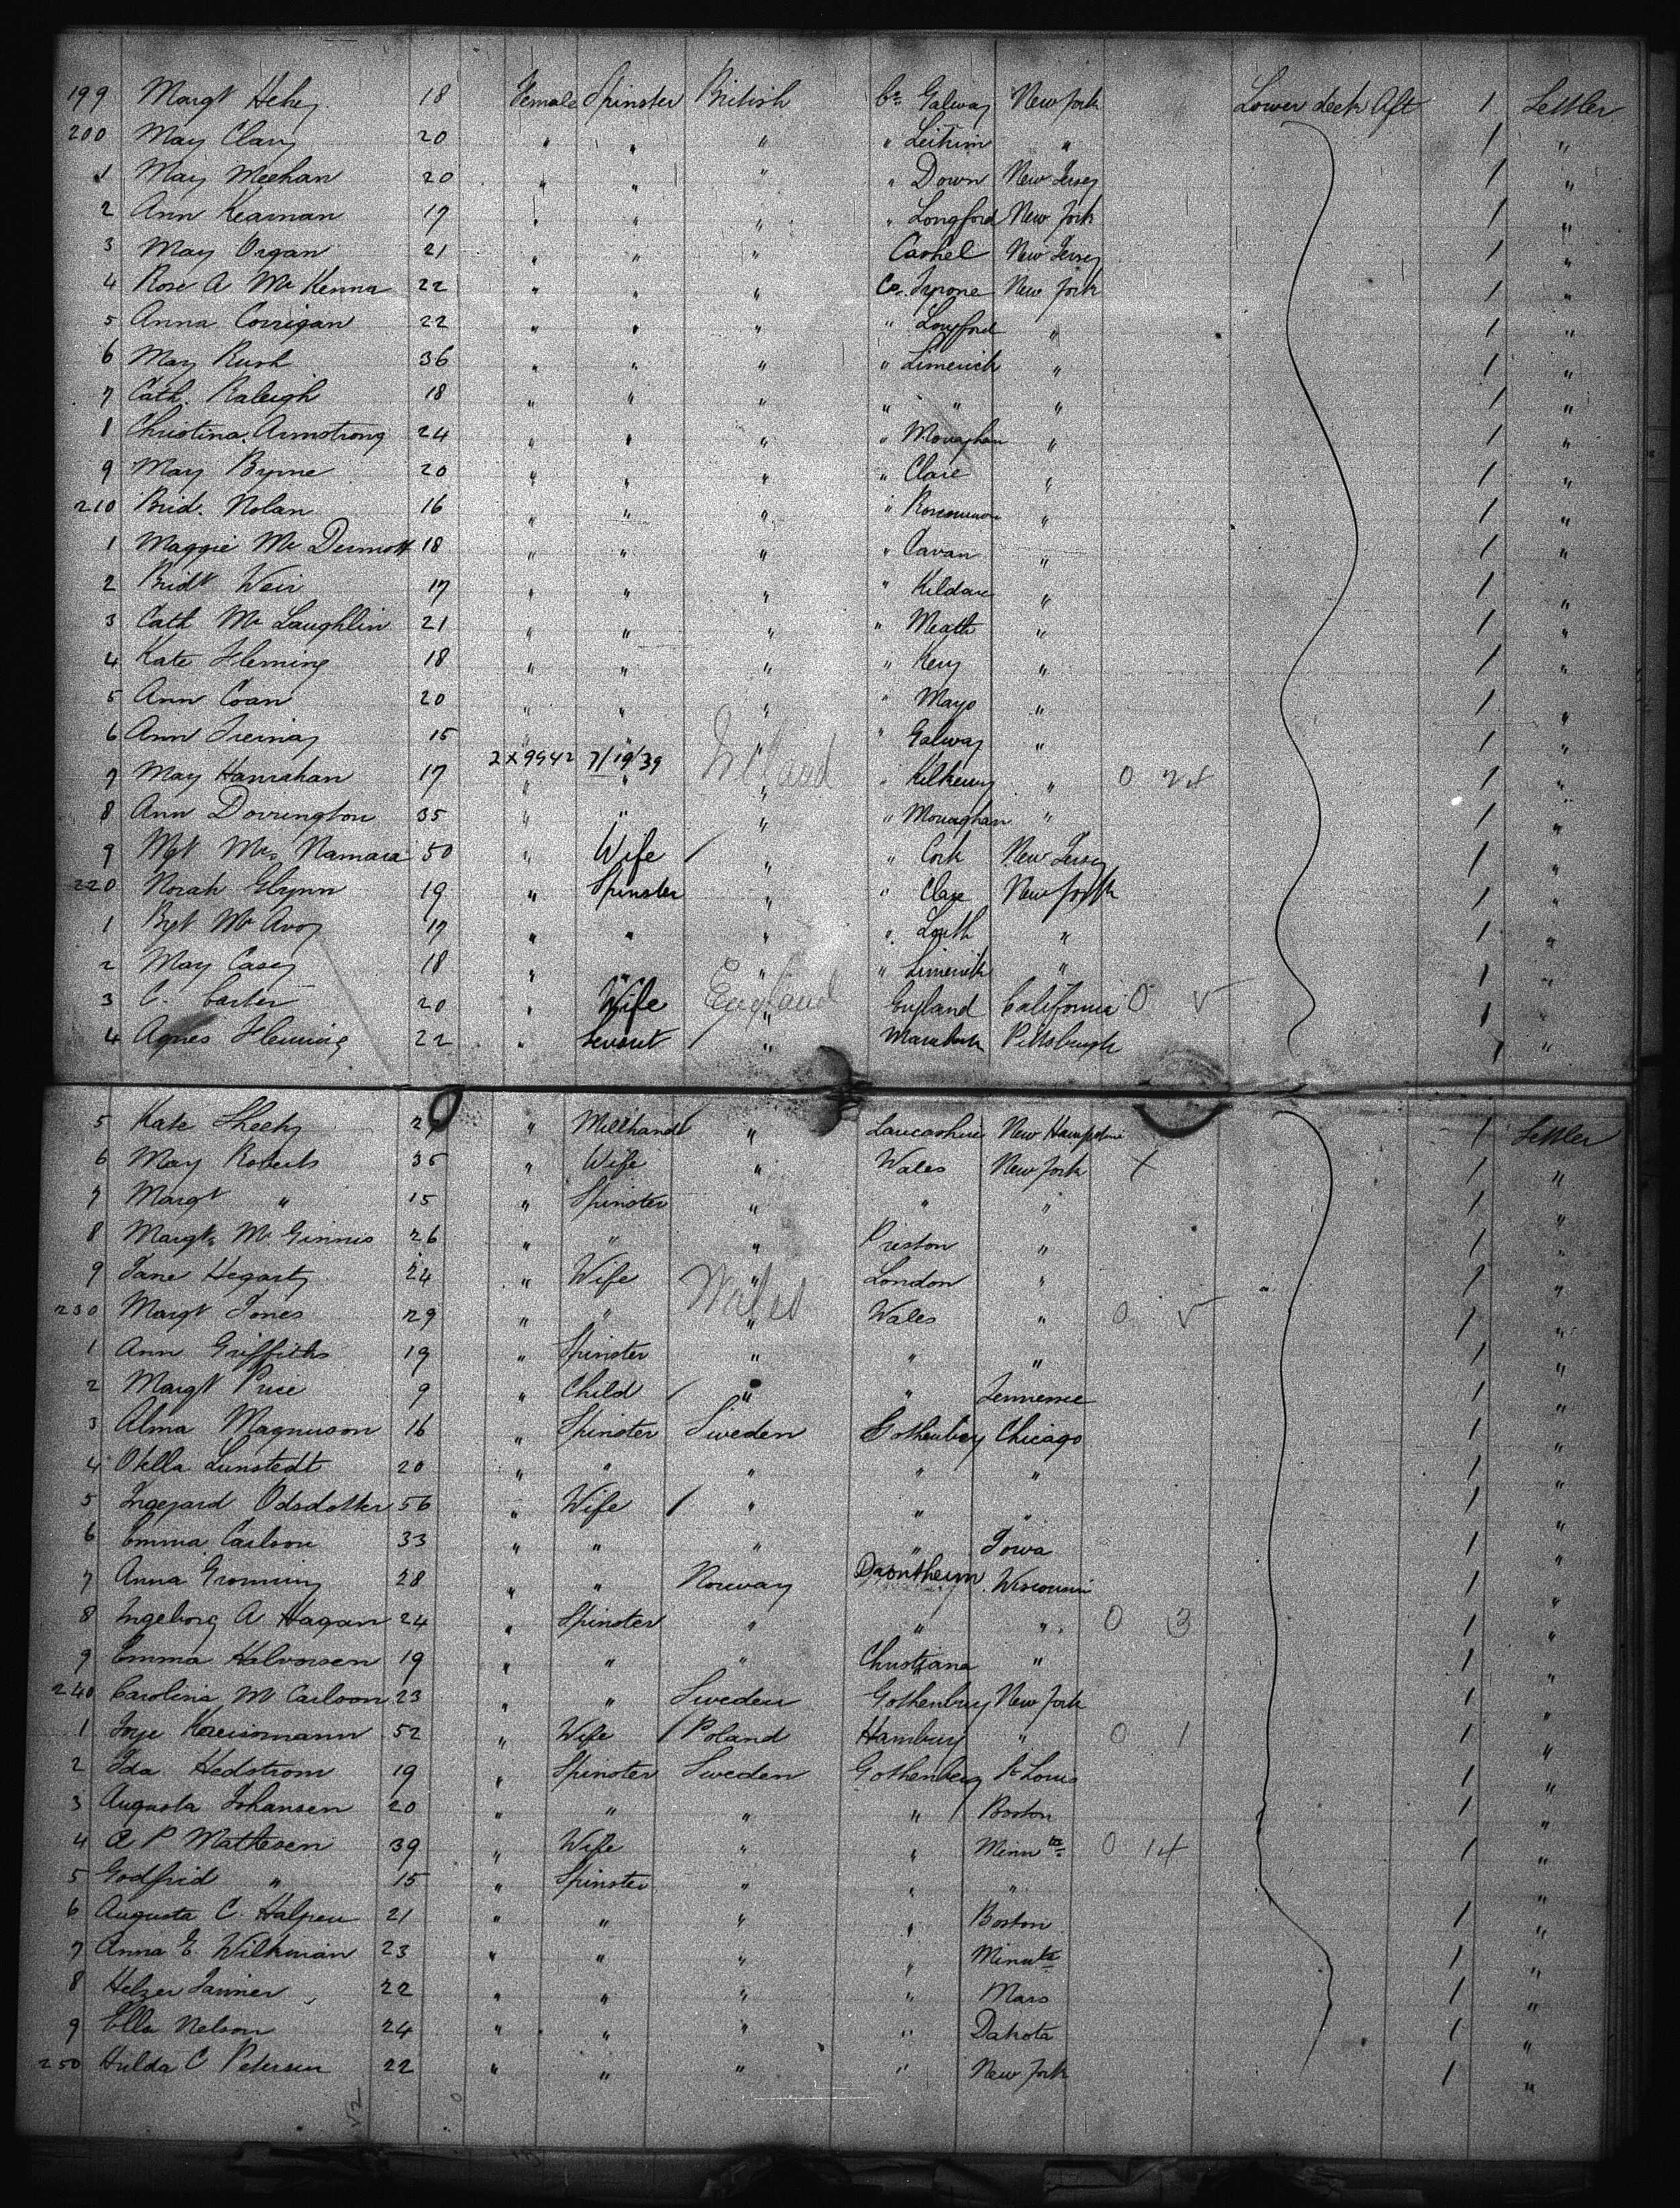 199 Margt Hehey 18 Female Spinster British Co. Galway New York Lower deck Aft 1 Settler
200 May Clary 20 " " " " Leitrim " 1 "
1 May Meehan 20 " " " " Down New Jersey 1 "
2 Ann Kearnan 17 " " " " Longford New York 1 "
3 May Organ 21 " " " Cashel New Jersey 1 "
4 Rose A McKenna 22 " " " Co. Tyrone New York 1 "
5 Anna Corrigan 22 " " " " Longford " 1 "
6 May Rush 36 " " " " Limerick " 1 "
7 Cath. Raleigh 18 " " " " " " 1 "
8 Christina Armstrong 24 " " " " Monaghan " 1 "
9 May Byrne 20 " " " " Clare " 1 "
210 Brid. Nolan 16 " " " " Roscommon " 1 "
1 Maggie McDermott 18 " " " " Cavan " 1 "
2 Bridt Weir 17 " " " " Kildare " 1 "
3 Cath McLaughlin 21 " " " " Meath " 1 "
4 Kate Fleming 18 " " " " Kerry " 1 "
5 Ann Coan 20 " " " " Mayo " 1 "
6 Ann 15 " " " " Galway " 1 "
2x9942 7/19/39 Ireland
7 May Hanrahan 17 " " " " Kilkenny " 0 24 1 "
8 Ann Dorrington 35 " " " " Monaghan " 1 "
9 Mgt McNamara 50 " Wife / " " Cork New Jersey 1 "
220 Norah Glynn 19 " Spinster " " Clare New York 1 "
1 Bgt McAvoy 17 " " " " Louth " 1 "
2 May Casey 18 " " " " Limerick " 1 "
3 C. Carter 20 " Wife England " England California 0 V 1 "
4 Agnes Fleming 22 " Servant / " Pittsburgh 1 "
5 Kate Sheehy " Millhand " Lancashire New Hampshire 1 Settler
6 May Roberts 35 " Wife " Wales New York X 1 "
7 Margt " 15 " Spinster " " " 1 "
8 Margt McGinnis 26 " " " Preston " 1 "
9 Jane Hegarty 24 " Wife " London " 1 "
230 Margt Jones 29 " " Wales " Wales " 0 V 1 "
1 Ann Griffiths 19 " Spinster " " " 1 "
2 Margt Price 9 " Child / " " Tennessee 1 "
3 Alma Magnuson 16 " Spinster Sweden Gothenburg Chicago 1 "
4 Otilla Lunstedt 20 " " " " " 1 "
5 Ingegard Odsdotter 56 " Wife / " " " 1 "
6 Emma Carlson 33 " " " " Iowa 1 "
7 Anna Gronning 28 " " Norway Drontheim Wisconsin 1 "
8 Ingeborg A Hagan 24 " Spinster " " " 0 3 1 "
9 Emma Halvorsen 19 " " " Christiana " 1 "
240 Carolina M Carlson 23 " " Sweden Gothenburg New York 1 "
1 52 " Wife / Poland Hamburg " 0 1 1 "
2 Ida Hedstrom 19 " Spinster Sweden Gothenberg St Louis 1 "
3 Augusta Johansen 20 " " " " Boston 1 "
4 A P Mathesen 39 " Wife " " Minnta 0 14 1 "
5 Godfrid " 15 " Spinster " " " "
6 Augusta C. Halpen 21 " " " " Boston 1 "
7 Anna E. Wilkman 23 " " " " Minnta 1 "
8 Helzer Janner 22 " " " " Mass 1 "
9 Ella Nelson 24 " " " " Dakota 1 "
250 Hulda C Petersen 22 " " " " New York 1 "